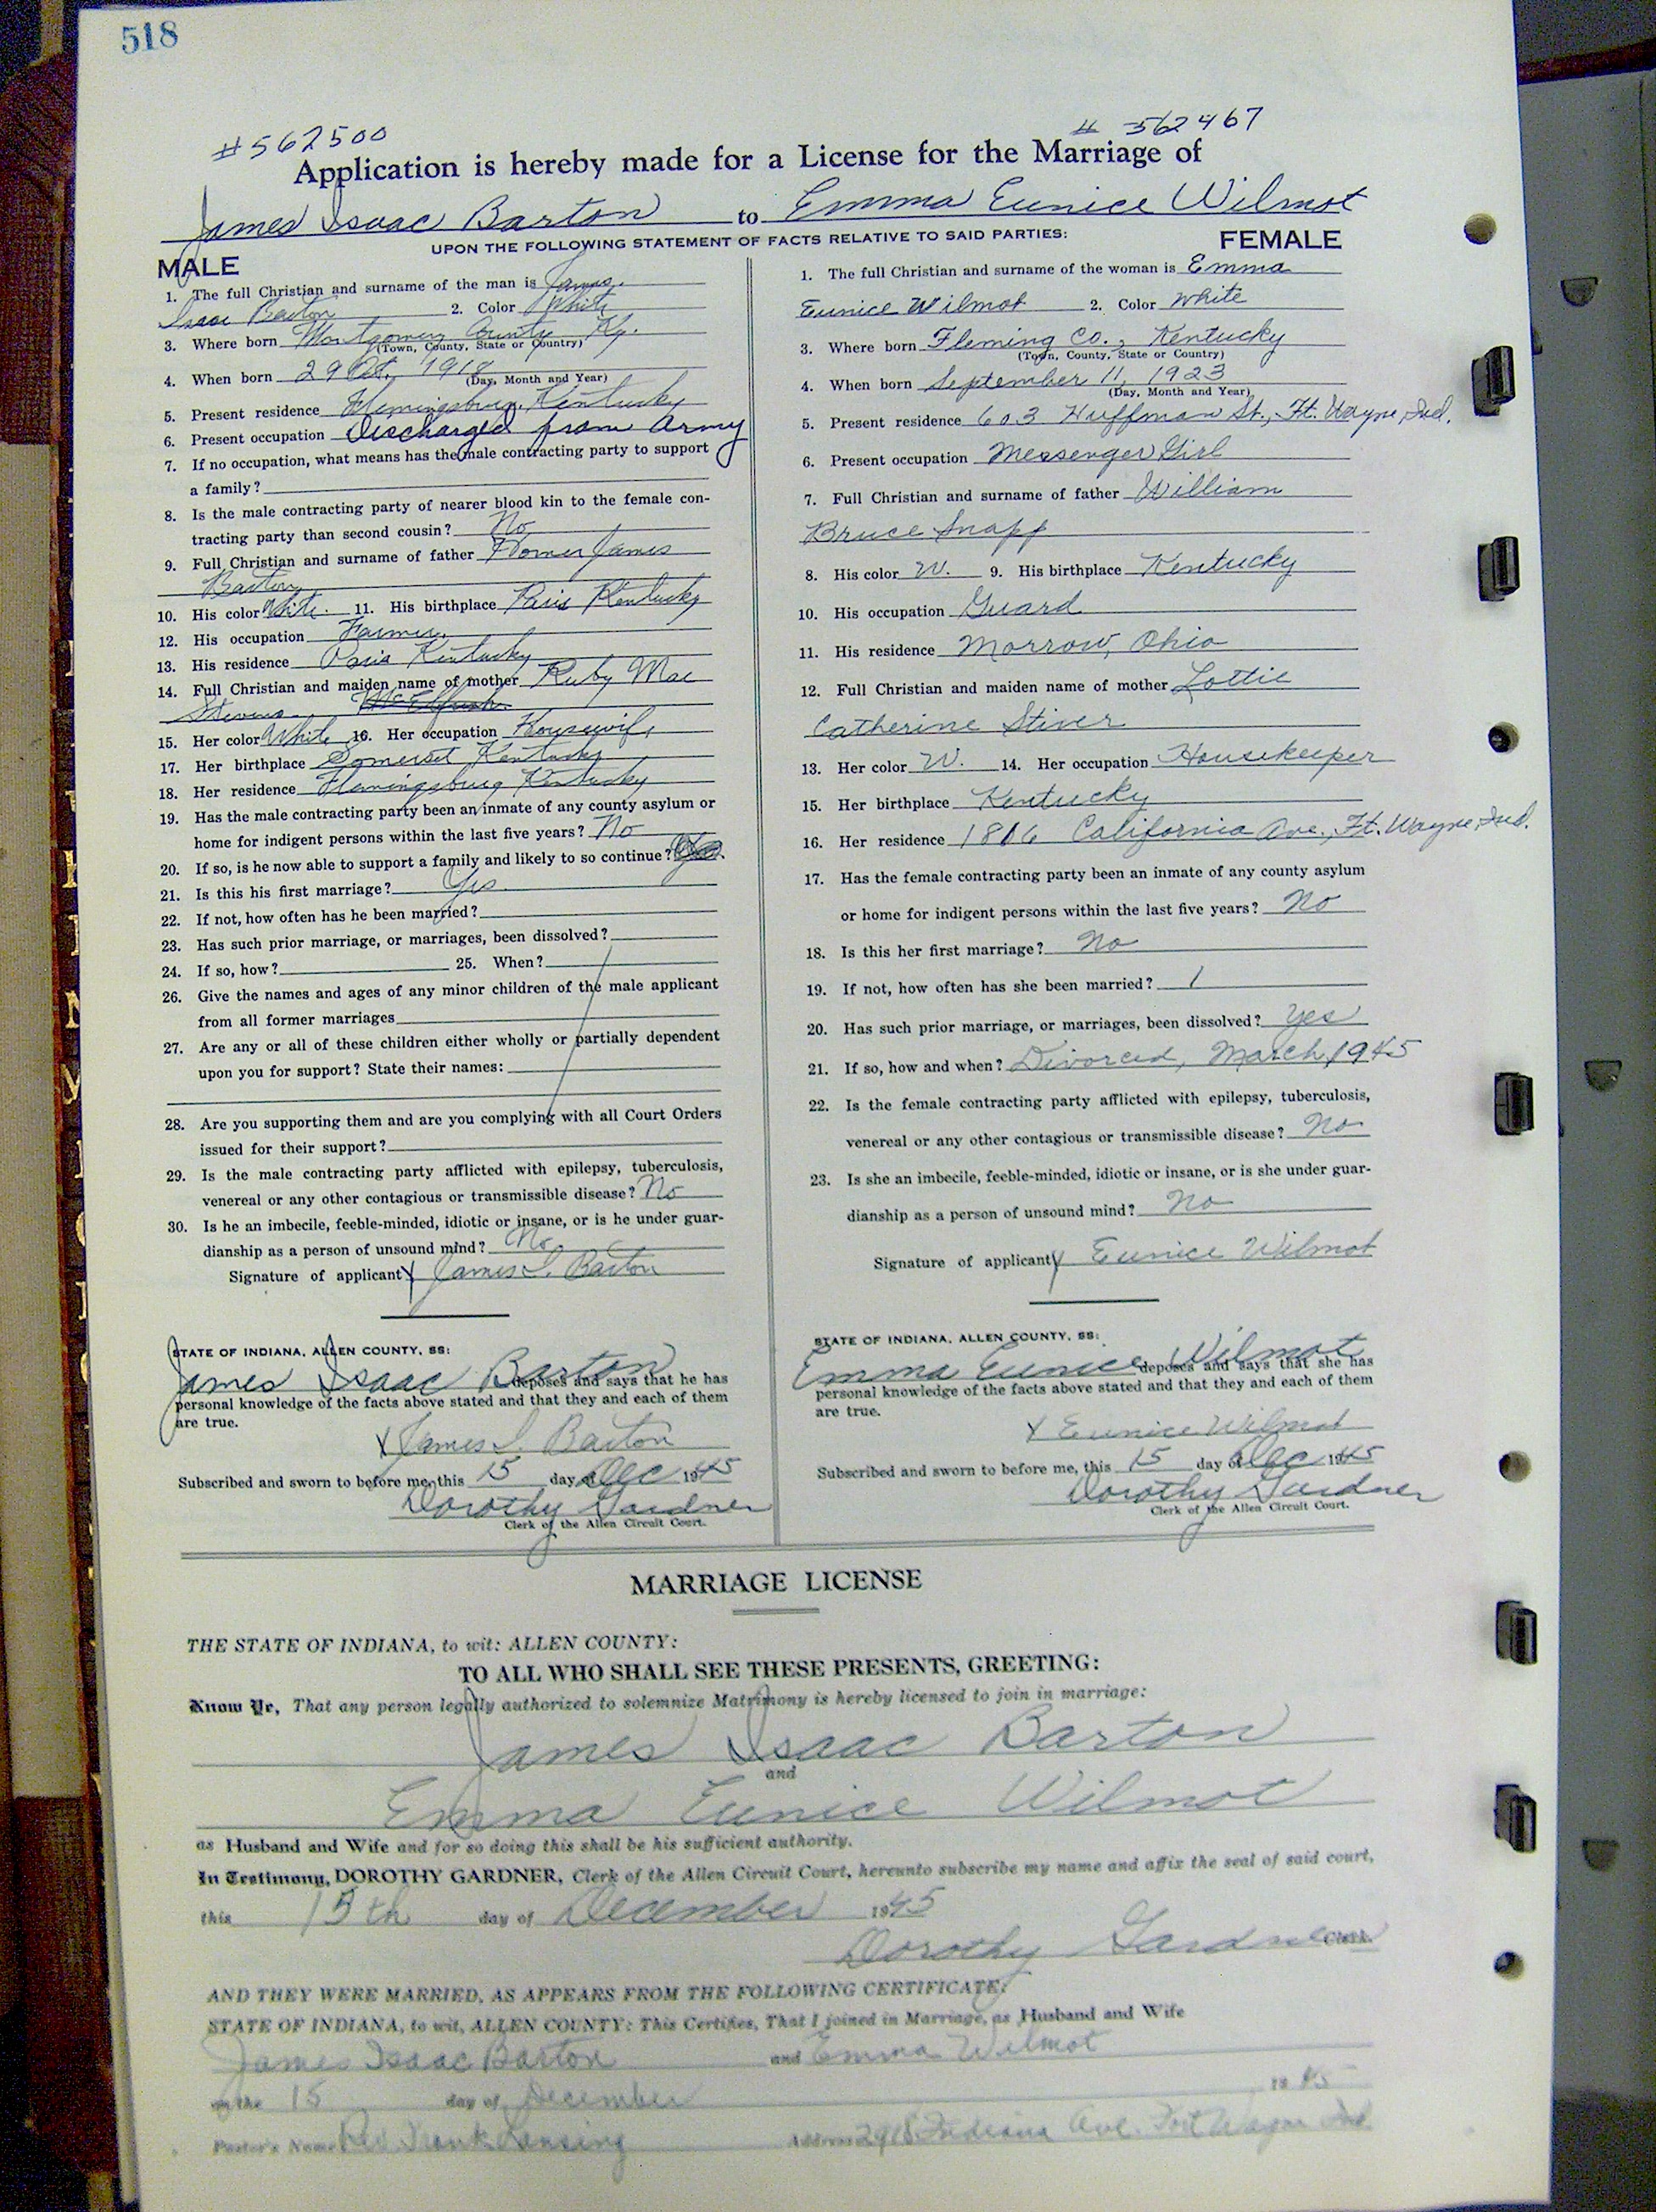 518
#562500
# 562467
Application is hereby made for a License for the Marriage of
James Isaac Barton to Emma Eunice Wilmot
UPON THE FOLLOWING STATEMENT OF FACTS RELATIVE TO SAID PARTIES:
MALE
1. The full Christian and surname of the man is James
Isaac Barton 2. Color White
3. Where born Montgomery County Ky.
(Town, County, State or Country)
4. When born 29 Oct. 1918
(Day, Month and Year)
5. Present residence Flemingsburg, Kentucky
6. Present occupation Discharged from Army
7. If no occupation, what means has the male contracting party to support
a family?
8. Is the male contracting party of nearer blood kin to the female con-
tracting party than second cousin? No
9. Full Christian and surname of father Homer James
Barton
10. His color White. 11. His birthplace Paris Kentucky
12. His occupation Farmer.
13. His residence Paris Kentucky
14. Full Christian and maiden name of mother Ruby Mae
Stevens
15. Her color White 16. Her occupation Housewife
17. Her birthplace Somerset Kentucky
18. Her residence Flemingsburg Kentucky
19. Has the male contracting party been an inmate of any county asylum or
home for indigent persons within the last five years? No
20. If so, is he now able to support a family and likely to so continue?
21. Is this his first marriage? Yes
22. If not, how often has he been married?
23. Has such prior marriage, or marriages, been dissolved?
24. If so, how? 25. When?
26. Give the names and ages of any minor children of the male applicant
from all former marriages
27. Are any or all of these children either wholly or partially dependent
upon you for support? State their names:
28. Are you supporting them and are you complying with all Court Orders
issued for their support?
29. Is the male contracting party afflicted with epilepsy, tuberculosis,
venereal or any other contagious or transmissible disease? No
30. Is he an imbecile, feeble-minded, idiotic or insane, or is he under guar-
dianship as a person of unsound mind? No
Signature of applicant X James I. Barton
STATE OF INDIANA, ALLEN COUNTY, SS:
James Isaac Barton deposes and says that he has
personal knowledge of the facts above stated and that they and each of them
are true.
X James I. Barton
Subscribed and sworn to before me, this 15 day of Dec 1945
Dorothy Gardner
Clerk of the Allen Circuit Court.
FEMALE
1. The full Christian and surname of the woman is Emma
Eunice Wilmot 2. Color White
3. Where born Fleming Co., Kentucky
(Town, County, State or Country)
4. When born September 11, 1923
(Day, Month and Year)
5. Present residence 603 Huffman St., Ft. Wayne, Ind.
6. Present occupation Messenger Girl
7. Full Christian and surname of father William
Bruce Snapp
8. His color W. 9. His birthplace Kentucky
10. His occupation Guard
11. His residence Morrow, Ohio
12. Full Christian and maiden name of mother Lottie
Catherine Stiver
13. Her color W. 14. Her occupation Housekeeper
15. Her birthplace Kentucky
16. Her residence 1816 California Ave., Ft. Wayne, Ind.
17. Has the female contracting party been an inmate of any county asylum
or home for indigent persons within the last five years? No
18. Is this her first marriage? No
19. If not, how often has she been married? 1
20. Has such prior marriage, or marriages, been dissolved? Yes
21. If so, how and when? Divorced, March, 1945
22. Is the female contracting party afflicted with epilepsy, tuberculosis,
venereal or any other contagious or transmissible disease? No
23. Is she an imbecile, feeble-minded, idiotic or insane, or is she under guar-
dianship as a person of unsound mind? No
Signature of applicant X Eunice Wilmot
STATE OF INDIANA, ALLEN COUNTY, SS:
Emma Eunice Wilmot deposes and says that she has
personal knowledge of the facts above stated and that they and each of them
are true.
X Eunice Wilmot
Subscribed and sworn to before me, this 15 day of Dec 1945
Dorothy Gardner
Clerk of the Allen Circuit Court.
MARRIAGE LICENSE
THE STATE OF INDIANA, to wit: ALLEN COUNTY:
TO ALL WHO SHALL SEE THESE PRESENTS, GREETING:
Know Ye, That any person legally authorized to solemnize Matrimony is hereby licensed to join in marriage:
James Isaac Barton
and
Emma Eunice Wilmot
as Husband and Wife and for so doing this shall be his sufficient authority.
In Testimony, DOROTHY GARDNER, Clerk of the Allen Circuit Court, hereunto subscribe my name and affix the seal of said court,
this 15th day of December 1945
Dorothy Gardner Clerk.
AND THEY WERE MARRIED, AS APPEARS FROM THE FOLLOWING CERTIFICATE:
STATE OF INDIANA, to wit, ALLEN COUNTY: This Certifies, That I joined in Marriage, as Husband and Wife
James Isaac Barton and Emma Wilmot
on the 15 day of December 1945
Pastor's Name Rev Frank Lansing Address 2918 Indiana Ave. Fort Wayne Ind.